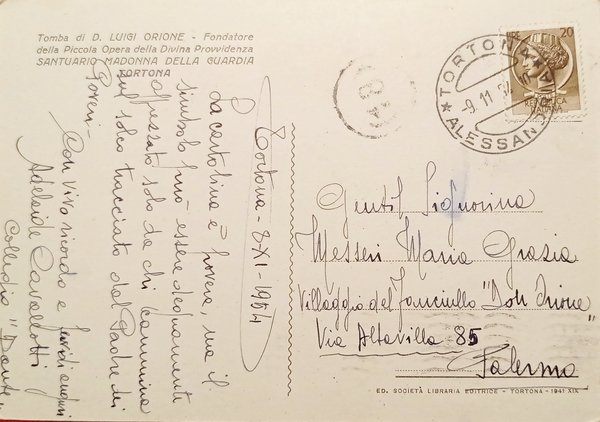 Tomba di D. LUIGI ORIONE - Fondatore
della Piccola Opera della Divina Provvidenza
SANTUARIO MADONNA DELLA GUARDIA
TORTONA
Tortona - 8-XI-1954
La cartolina è povera, ma il
simbolo può essere degnamente
apprezzato solo da chi cammina
sul solco tracciato dal Padre dei
Poveri -
Con vivo ricordo e fervidi auguri
Adelaide Cavallotti
Collegio "Dante"
TORTONA
9.11.54
ALESSANDRIA
LIRE 20
REPUBBLICA
Gentil Signorina
Messeri Maria Grazia
Villaggio del Fanciullo "Don Orione"
Via Altavilla 85
Palermo
ED. SOCIETÀ LIBRARIA EDITRICE - TORTONA - 1941 XIX